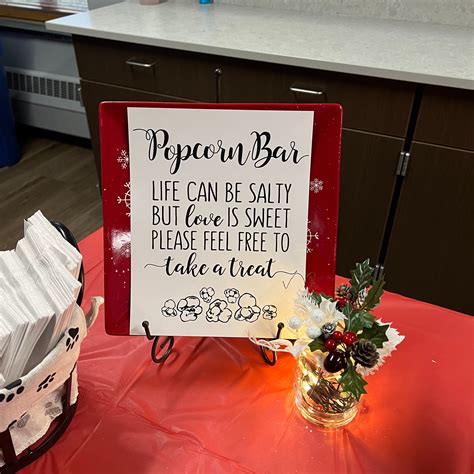 Popcorn Bar
LIFE CAN BE SALTY
BUT love IS SWEET
PLEASE FEEL FREE TO
take a treat